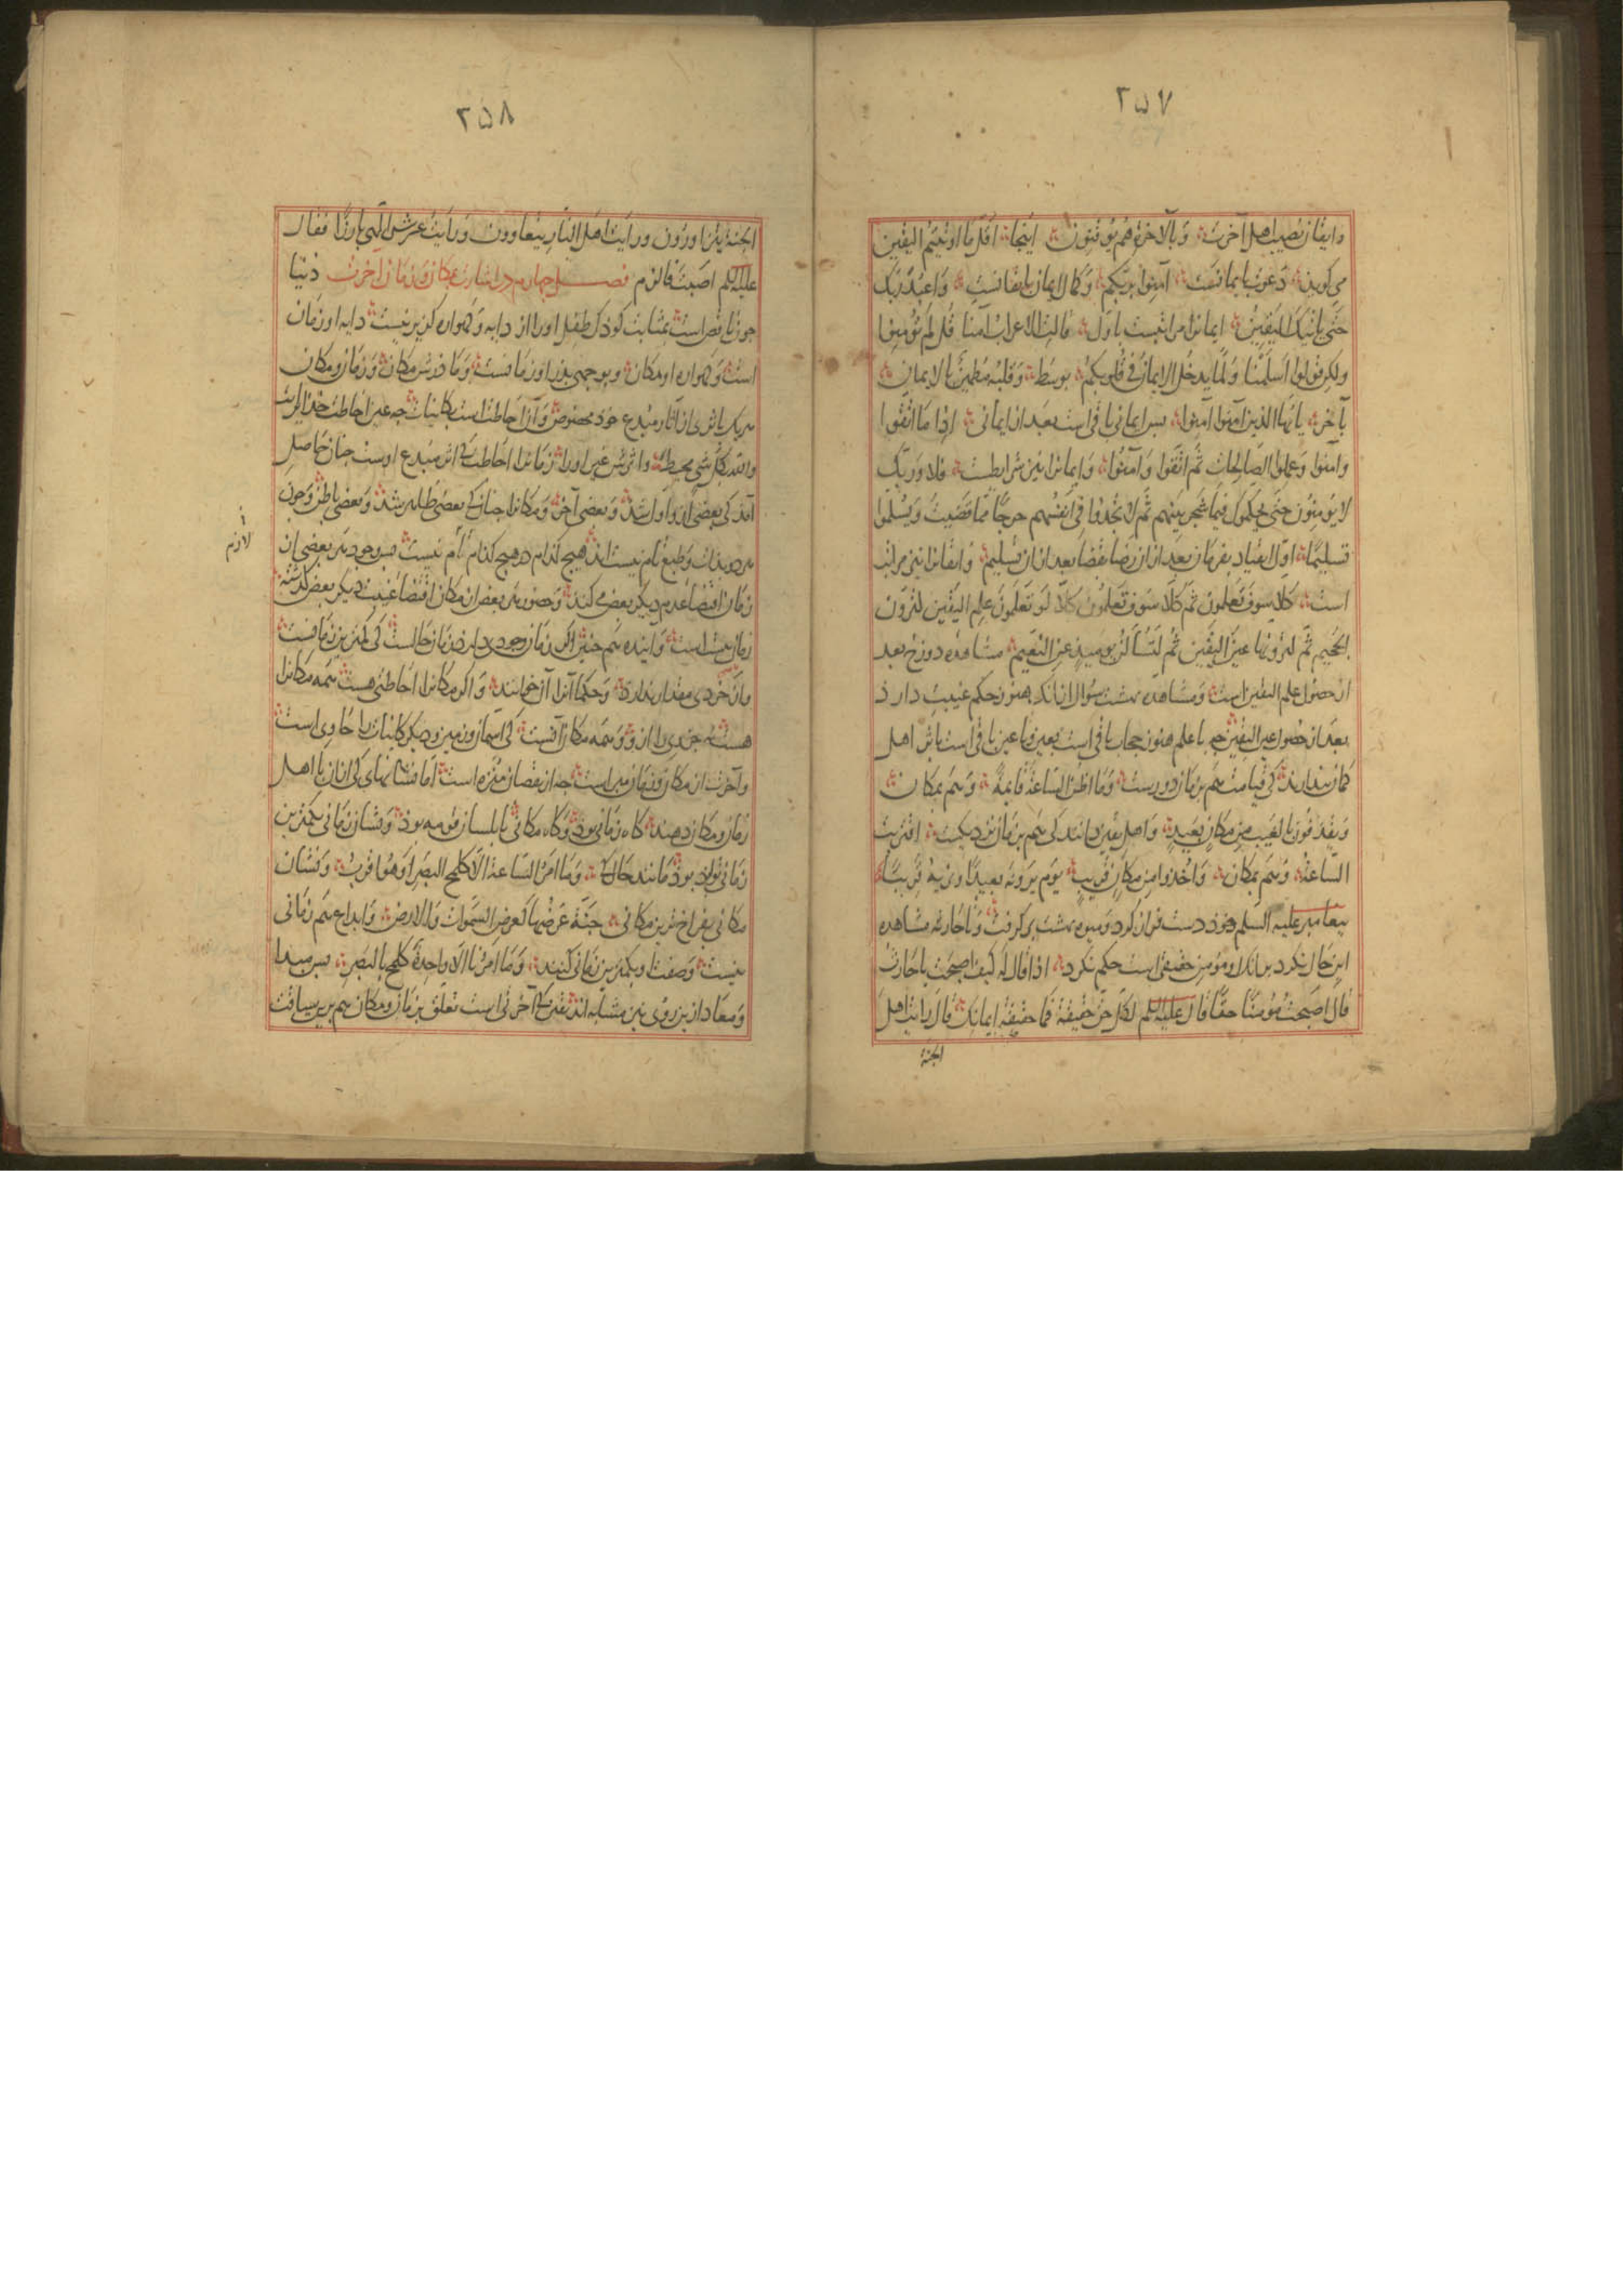 ۲۵۷
و ایقان نصیب اهل آخرت و بالآخرة هم یوقنون اینجا اقل ما اوتیتم الیقین
می گویند دعوت بایمانست آمنوا بربکم و کمال ایمان بایقانست و اعبد ربک
حتی یاتیک الیقین ایمانرا مراتبست باول قالت الاعراب آمنا قل لم تؤمنوا
ولکن قولوا اسلمنا و لما یدخل الایمان فی قلوبکم بوسط و قلبه مطمئن بالایمان
بآخر یا ایها الذین آمنوا آمنوا پس ایمانی باقی است بعد از ایمانی اذا ما اتقوا
وآمنوا وعملوا الصالحات ثم اتقوا وآمنوا و ایمانرا نیز شرایطست فلا وربک
لا یؤمنون حتی یحکموک فیما شجر بینهم ثم لا یجدوا فی انفسهم حرجا مما قضیت ویسلموا
تسلیما اول انقیاد بفرمان بعد ازان رضا بقضا بعد ازان تسلیم و ایقانرا نیز مراتب
است کلا سوف تعلمون ثم کلا سوف تعلمون کلا لو تعلمون علم الیقین لترون
الجحیم ثم لترونها عین الیقین ثم لتسألن یومئذ عن النعیم مشاهده دوزخ بعد
از حصول علم الیقین است و مشاهده بهشت سؤال ازانک هنوز حکم غیبت دارد
بعد از حصول عین الیقین چه با علم هنوز حجاب باقی است بعین و با عین باقی است باثر اهل
گمان پندارند کی قیامت هم بزمان دورست وما اظن الساعة قائمة و هم بمکان
ویقذفون بالغیب من مکان بعید و اهل یقین دانند کی هم بزمان نزدیکست اقتربت
الساعة و هم بمکان واخذوا من مکان قریب یوم یرونه بعیدا ونریه قریبا
پیغامبر علیه السلم دست فراز کرد و میوه بهشت بر گرفت و تا حارثه مشاهده
این حال نکرد برانک او مؤمن حقیقی است حکم نکرد اذ قال له کیف اصبحت یا حارث
قال اصبحت مؤمنا حقا قال علیه السلم لکل حق حقیقة فما حقیقة ایمانک قال رایت اهل
الجنة
۲۵۸
الجنة یتزاورون ورایت اهل النار یتعاوون ورایت عرش الهی بارزا فقال
علیه السلم اصبت فالزم فصل چهارم در اشارت بمکان و زمان آخرت دنیا
چون ناقص است بمثابت کودک طفل او را از دایه و گهواره گزیر نیست دایه او زمان
است و گهواره او مکان و بوجهی پدر او زمانست و مادرش مکان و زمان و مکان
هر یک باثری از آثار مبدع خود مخصوص و آن احاطت است بکاینات
والله بکل شیء محیط و اثری غیر او را زمانرا احاطت اثر مبدع اوست چنان حاصل
آمد کی بعضی ازو اول شد و بعضی آخر و مکانرا چنانک بعضی ظاهر شد و بعضی باطن و چون
هر دو بذات و طبع تام نیست اند هیچ کدام هیچ کدام تام نیست پس وجود هر بعضی از
لازم
زمان اقتضاء عدم دیگر بعض می کند و حضور هر بعض از مکان اقتضاء غیبت دیگر بعض گذشته
زمان نیست است و آینده هم چنین اگر زمان وجودی دارد زمان حالست کی کمترین زمانست
و آن خردی مقدار ندارد و حکما آنرا آن خوانند و اگر مکانرا احاطتی هست همه مکانرا
هست نه جزوی را از و و همه مکان آنست کی آسمان و زمین و دیگر کاینات را حاوی است
و آخرت از مکان و زمان مبراست چه از نقصان منزه است اما نشانهای کی ازان با اهل
زمان و مکان دهند گاه زمانی بود و گاه مکانی تا بلسان قومه بود و نشان زمانی بکمترین
زمانی تواند بود مانند حال وما امر الساعة الا کلمح البصر او هو اقرب و نشان
مکانی بفراخ ترین مکانی جنة عرضها کعرض السموات والارض و ابداع هم زمانی
نیست و صفتش بکمترین زمانی کنند وما امرنا الا واحدة کلمح بالبصر پس مبدا
و معاد ازین روی نیز متشابه اند بقدر آخرتی است تعلق بزمان و مکان هم برین سیاقت